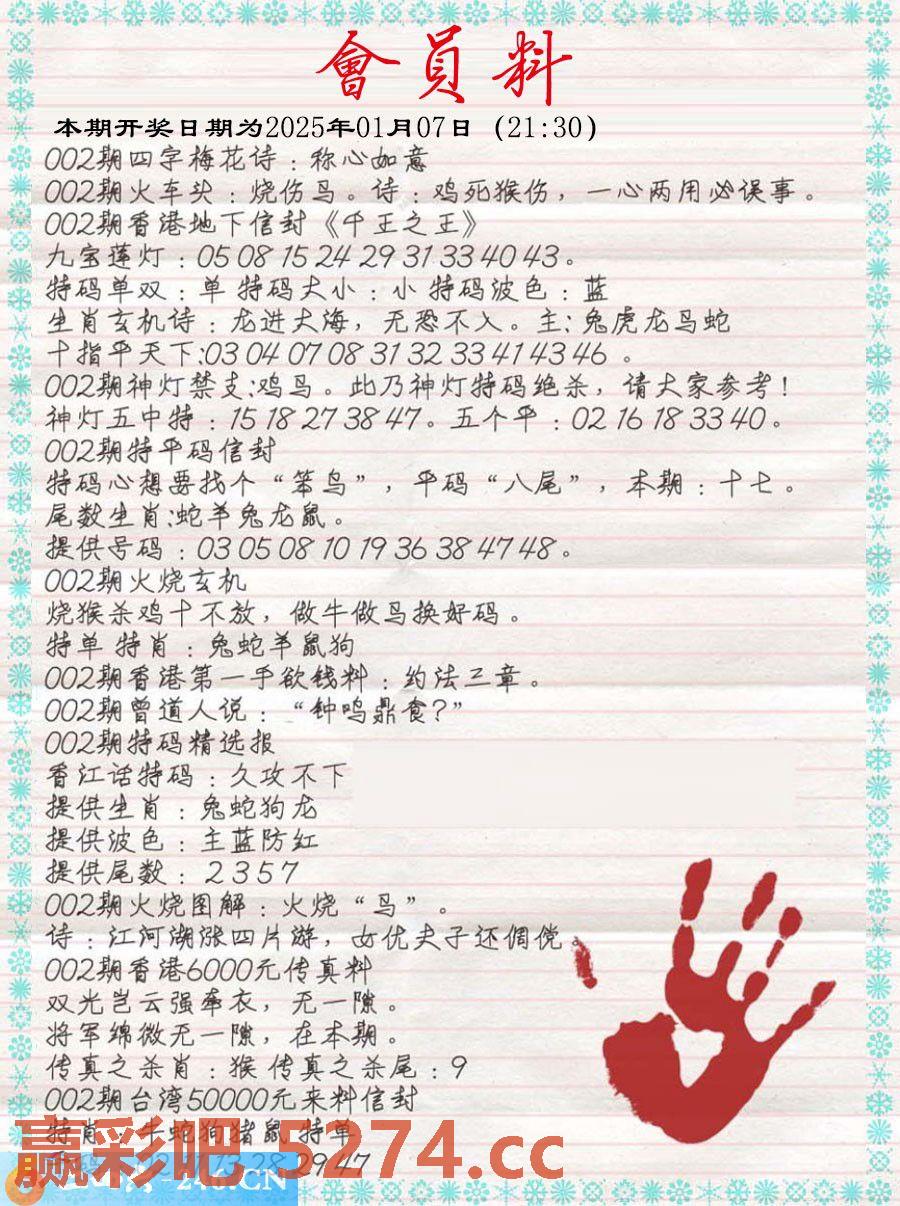 會員料
本期开奖日期为2025年01月07日（21:30）
002期四字梅花诗：称心如意
002期火车头：烧伤鸟。诗：鸡死猴伤，一心两用必误事。
002期香港地下信封《千王之王》
九宝莲灯：05 08 15 24 29 31 33 40 43。
特码单双：单 特码大小：小 特码波色：蓝
生肖玄机诗：龙进大海，无恐不入。主:兔虎龙鸟蛇
十指平天下:03 04 07 08 31 32 33 41 43 46 。
002期神灯禁支:鸡鸟。此乃神灯特码绝杀，请大家参考！
神灯五中特：15 18 27 38 47。五个平：02 16 18 33 40。
002期特平码信封
特码心想要找个“笨鸟”，平码“八尾”，本期：十七。
尾数生肖:蛇羊兔龙鼠。
提供号码：03 05 08 10 19 36 38 47 48。
002期火烧玄机
烧猴杀鸡十不放，做牛做鸟换好码。
特单 特肖：兔蛇羊鼠狗
002期香港第一手欲钱料：约法三章。
002期曾道人说：“钟鸣鼎食?”
002期特码精选报
香江话特码：久攻不下
提供生肖：兔蛇狗龙
提供波色：主蓝防红
提供尾数：2 3 5 7
002期火烧图解：火烧“鸟”。
诗：江河湖涨四片游，女优夫子还倜傥。
002期香港6000元传真料
双光岂云强牵衣，无一隙。
将军绵微无一隙，在本期。
传真之杀肖：猴 传真之杀尾：9
002期台湾50000元来料信封
特肖：牛蛇狗猪鼠 特单
28 29 47
赢彩吧.5274.cc
246.CN